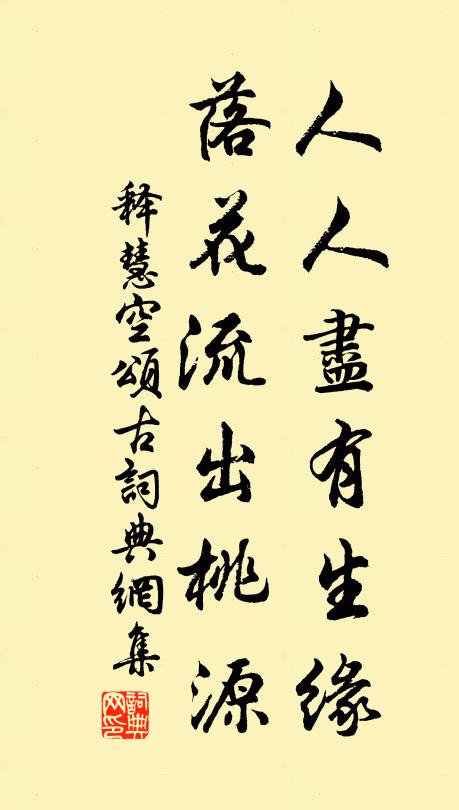 人人盡有生緣
落花流出桃源
释慧空頌古詞典網集
詞典網印